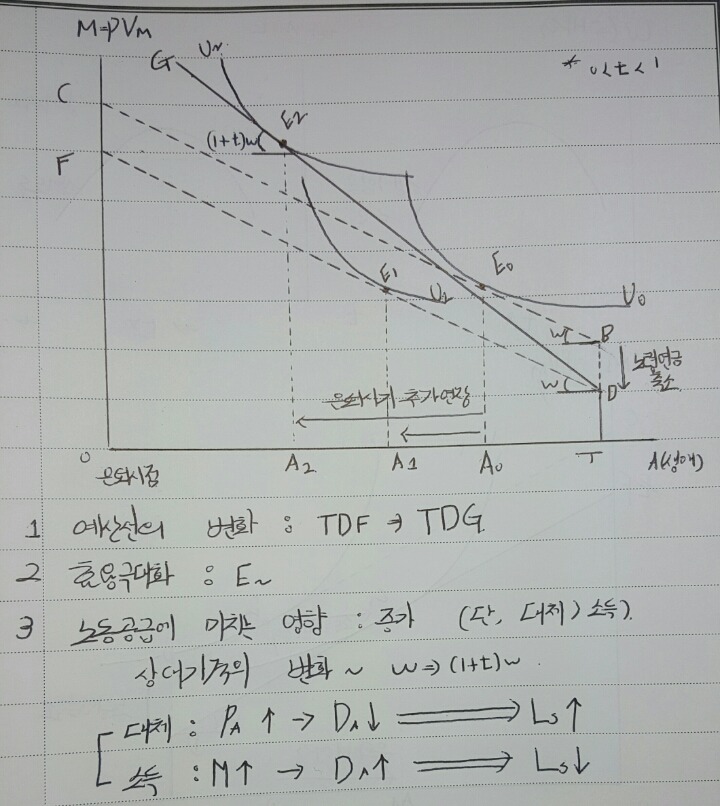 M=PVm
* 0<t<1
G
U2
C
E2
(1+t)w
F
E1
E0
U1
U0
w
B
노령연금
축소
w
D
은퇴시기 추가연장
0
A2
A1
A0
T
A(생애)
은퇴시점
1 예산선의 변화 : TDF ⇒ TDG
2 효용극대화 : E2
3 노동공급에 미치는 영향 : 증가 (단, 대체>소득).
상대가격의 변화 ~ w⇒(1+t)w.
대체 : PA ↑ → DA↓ ⟹ Ls↑
소득 : M↑ → DA↑ ⟹ Ls↓